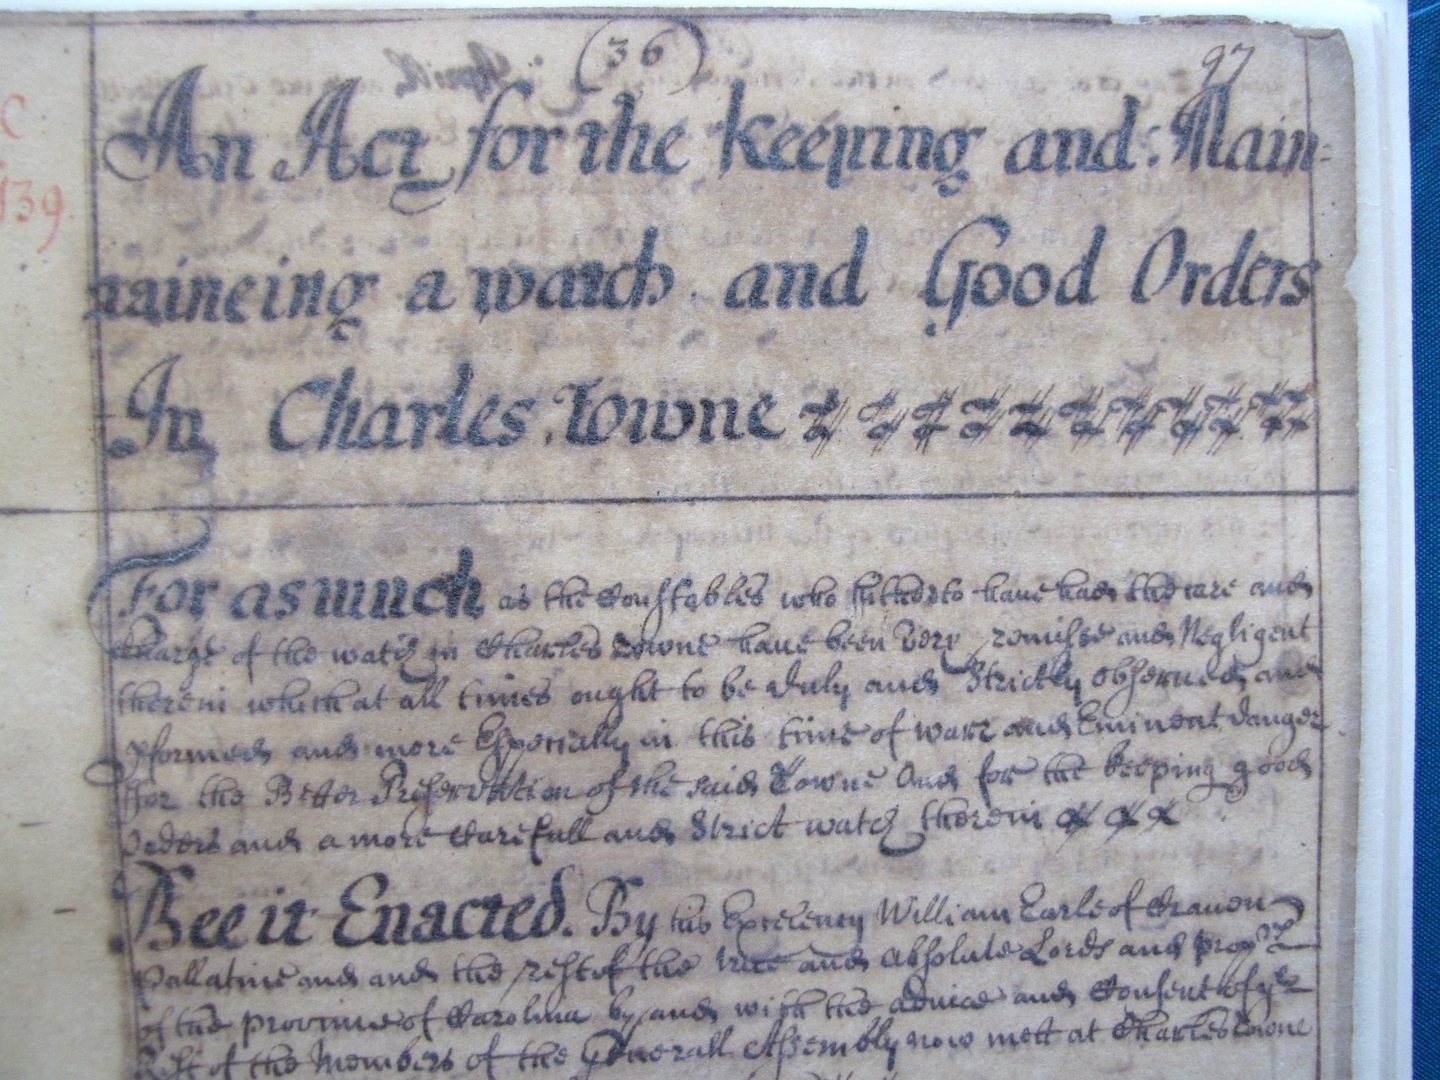 (36)
97
C
139.
An Act for the Keeping and Main-
taineing a watch and Good Orders
In Charles Towne
For as much as the Constables who hitherto have had the care and
Charge of the watch in Charles Towne have been very remisse and Negligent
therein which at all times ought to be duly and Strictly observed and
pformed and more Especially in this time of warr and Eminent danger
ffor the Better Preservation of the said Towne And for the keeping good
orders and a more Carefull and Strict watch therein
Bee it Enacted. By his Excelency William Earle of Craven
Pallatine and and the rest of the true and absolute Lords and prop
of the province of Carolina by and with the advice and Consent of ye
Rest of the Members of the Generall Assembly now mett at Charles Towne